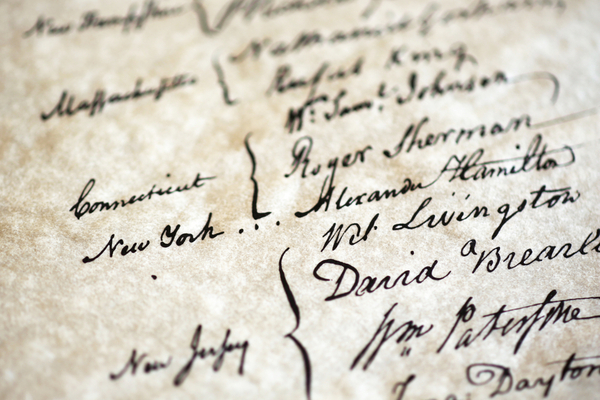 New Hampshire {
Massachusetts { Nathaniel Gorham
Rufus King
Connecticut { Wm. Saml. Johnson
Roger Sherman
New York . . . Alexander Hamilton
New Jersey { Wil. Livingston
David Brearl
Wm Paterson
Dayton